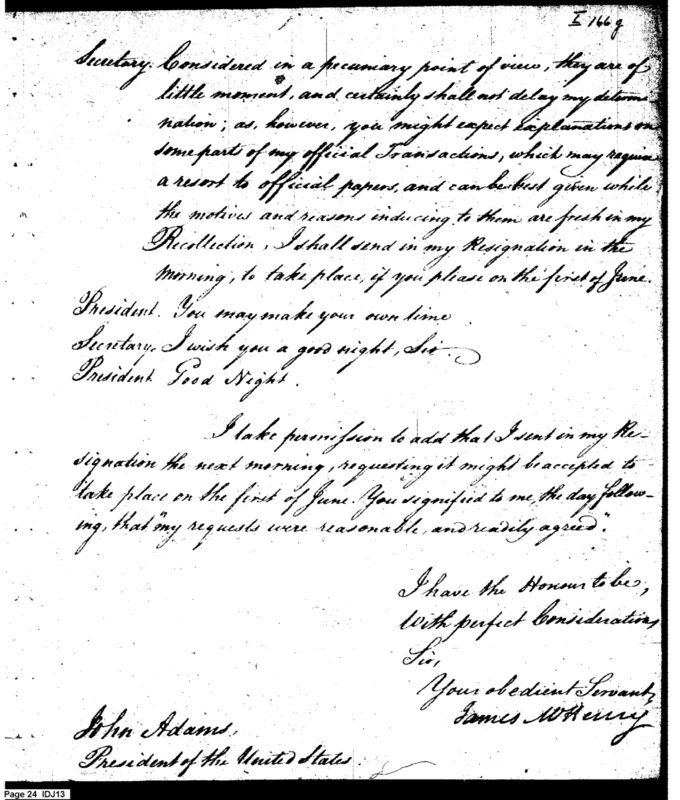 I 166 g
Secretary. Considered in a pecuniary point of view, they are of
little moment, and certainly shall not delay my determi
nation; as, however, you might expect explanations on
some parts of my official Transactions, which may require
a resort to official papers, and can be best given while
the motives and reasons inducing to them are fresh in my
Recollection, I shall send in my Resignation in the
morning, to take place, if you please on the first of June.
President. You may make your own time
Secretary, I wish you a good night, Sir.
President Good Night.
I take permission to add that I sent in my Re-
signation the next morning, requesting it might be accepted to
take place on the first of June. You signified to me, the day follow-
ing, that "my requests were reasonable, and readily agreed".
I have the Honour to be,
With perfect Consideration,
Sir,
Your obedient Servant,
James McHenry
John Adams,
President of the United States.
Page 24 IDJ13